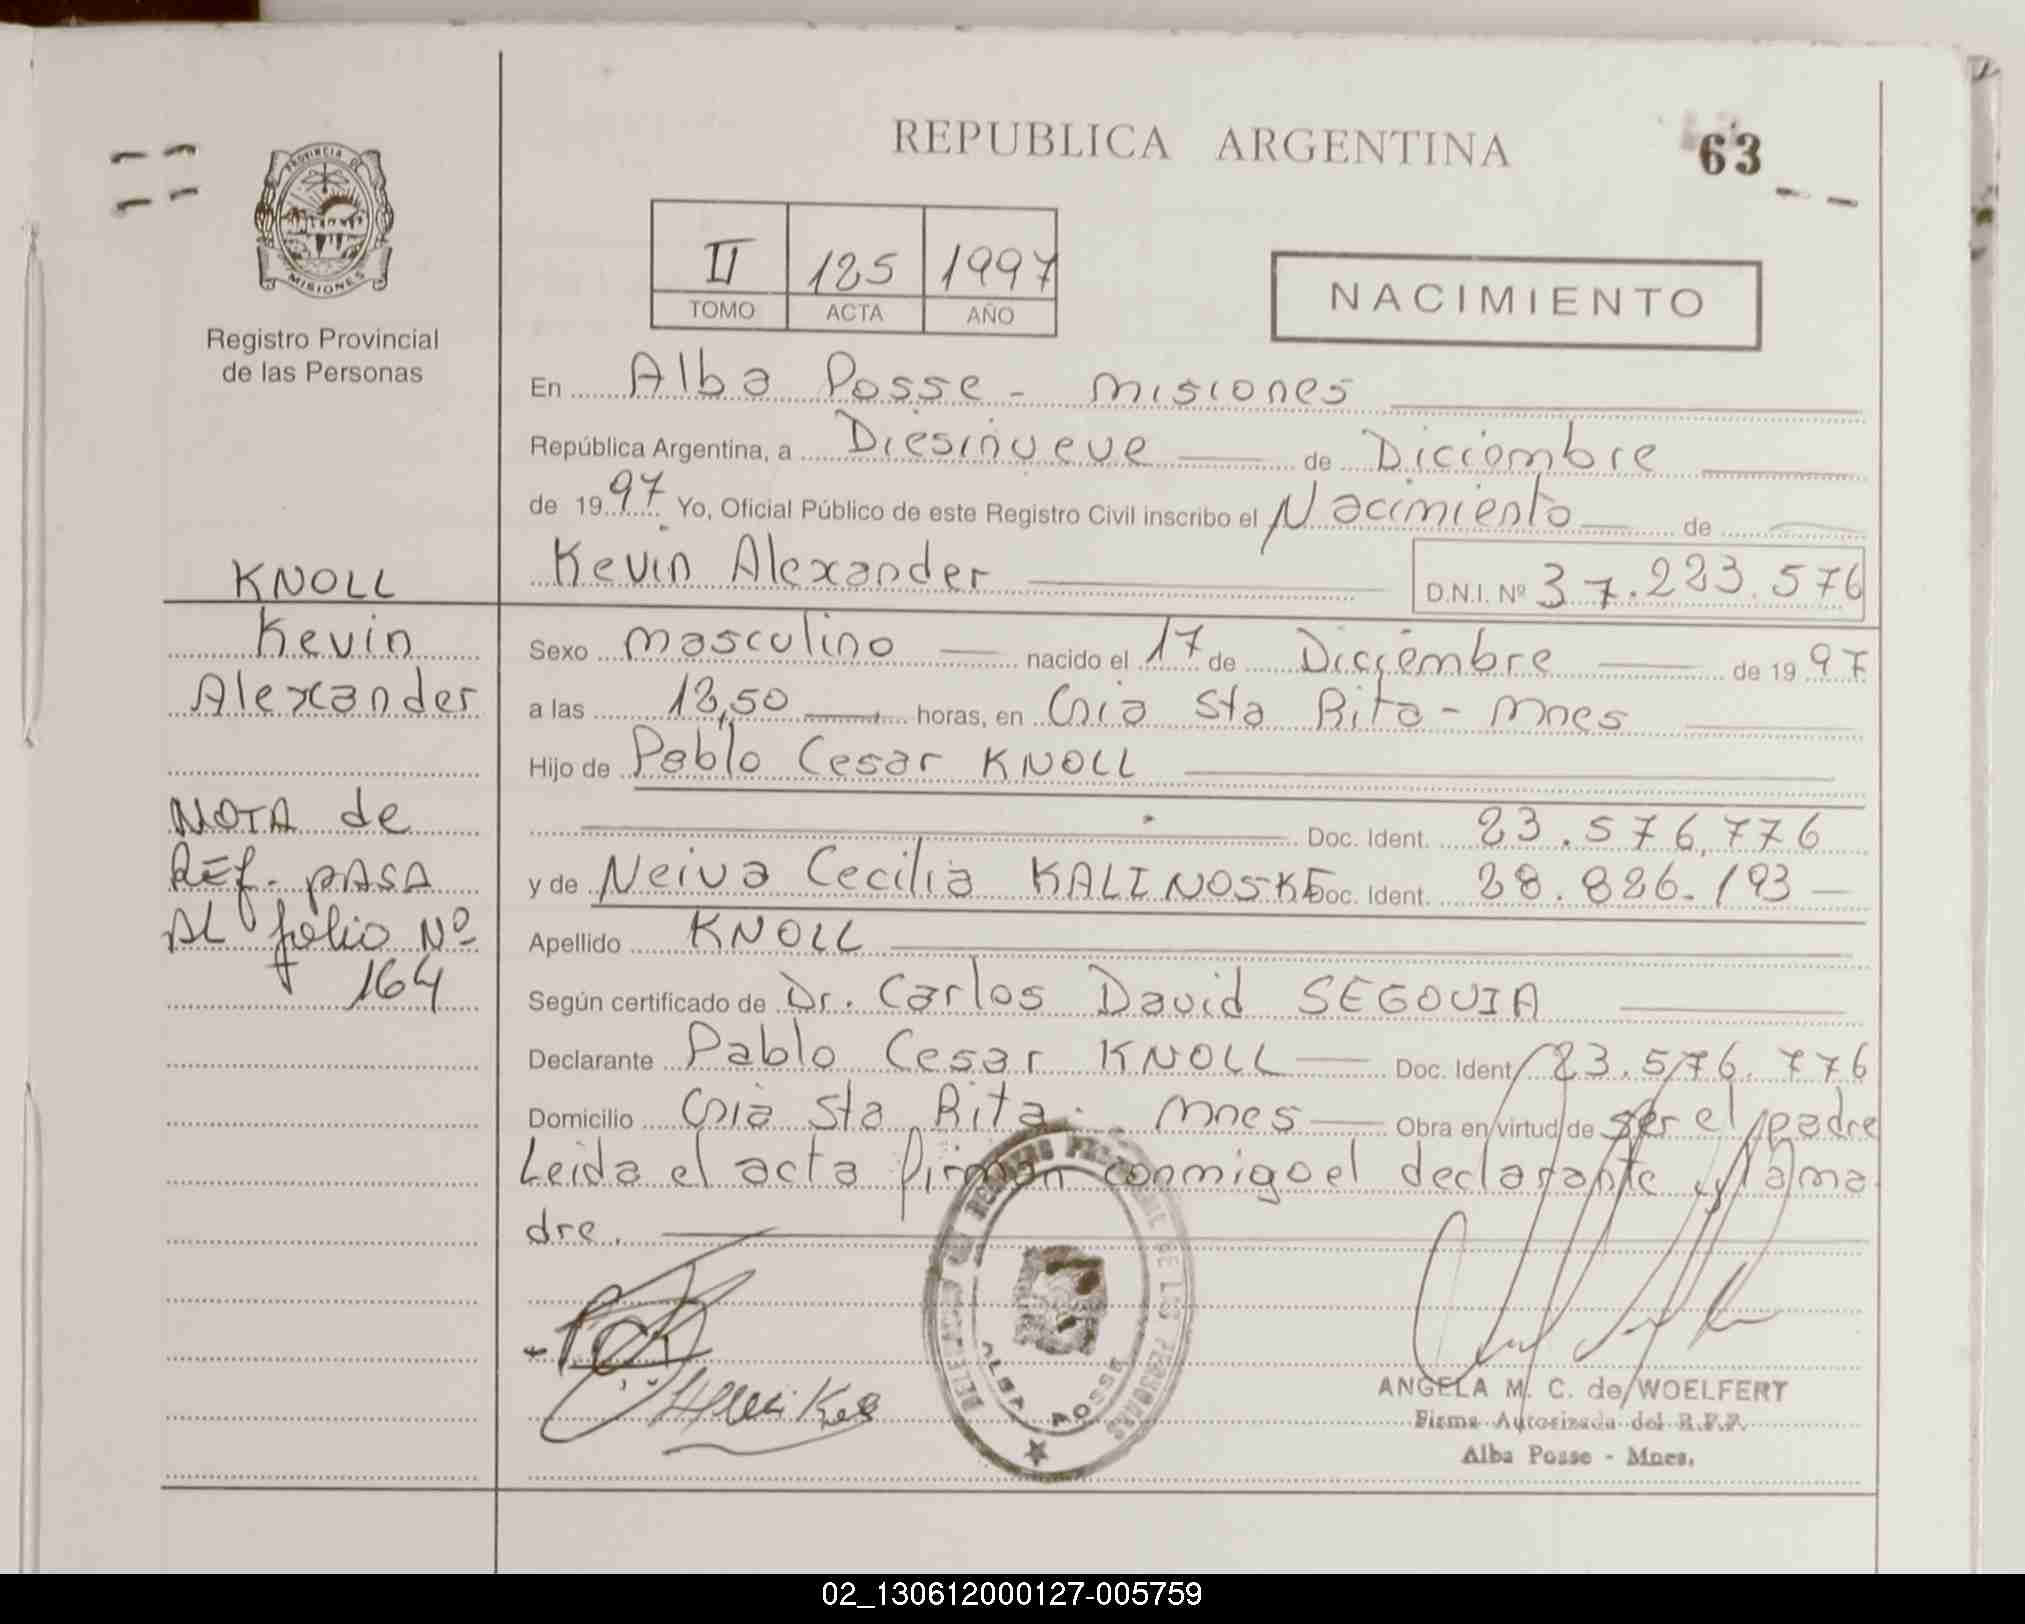 REPUBLICA ARGENTINA
63
PROVINCIA DE
MISIONES
Registro Provincial
de las Personas
II 125 1997
TOMO ACTA AÑO
NACIMIENTO
En Alba Posse - misiones
República Argentina, a Diesinueve de Diciembre
de 1997 Yo, Oficial Público de este Registro Civil inscribo el Nacimiento de
Kevin Alexander D.N.I. Nº 37.223.576
KNOLL
Kevin
Alexander
Sexo masculino nacido el 17 de Diciembre de 1997
a las 12,50 horas, en Cnia Sta Rita - mnes
Hijo de Pablo Cesar KNOLL
Doc. Ident. 23.576,776
y de Neiva Cecilia KALINOSKI Doc. Ident. 28.826.193
Apellido KNOLL
Según certificado de Dr. Carlos David SEGOVIA
Declarante Pablo Cesar KNOLL Doc. Ident 23.576.776
Domicilio Cnia Sta Rita. mnes Obra en virtud de ser el padre
Leida el acta firman conmigo el declarante y la ma-
dre.
NOTA de
REf. pASA
AL folio Nº
164
ALBA POSSE
ANGELA M. C. de WOELFERT
Firma Autorizada del R.P.P.
Alba Posse - Mnes.
02_130612000127-005759